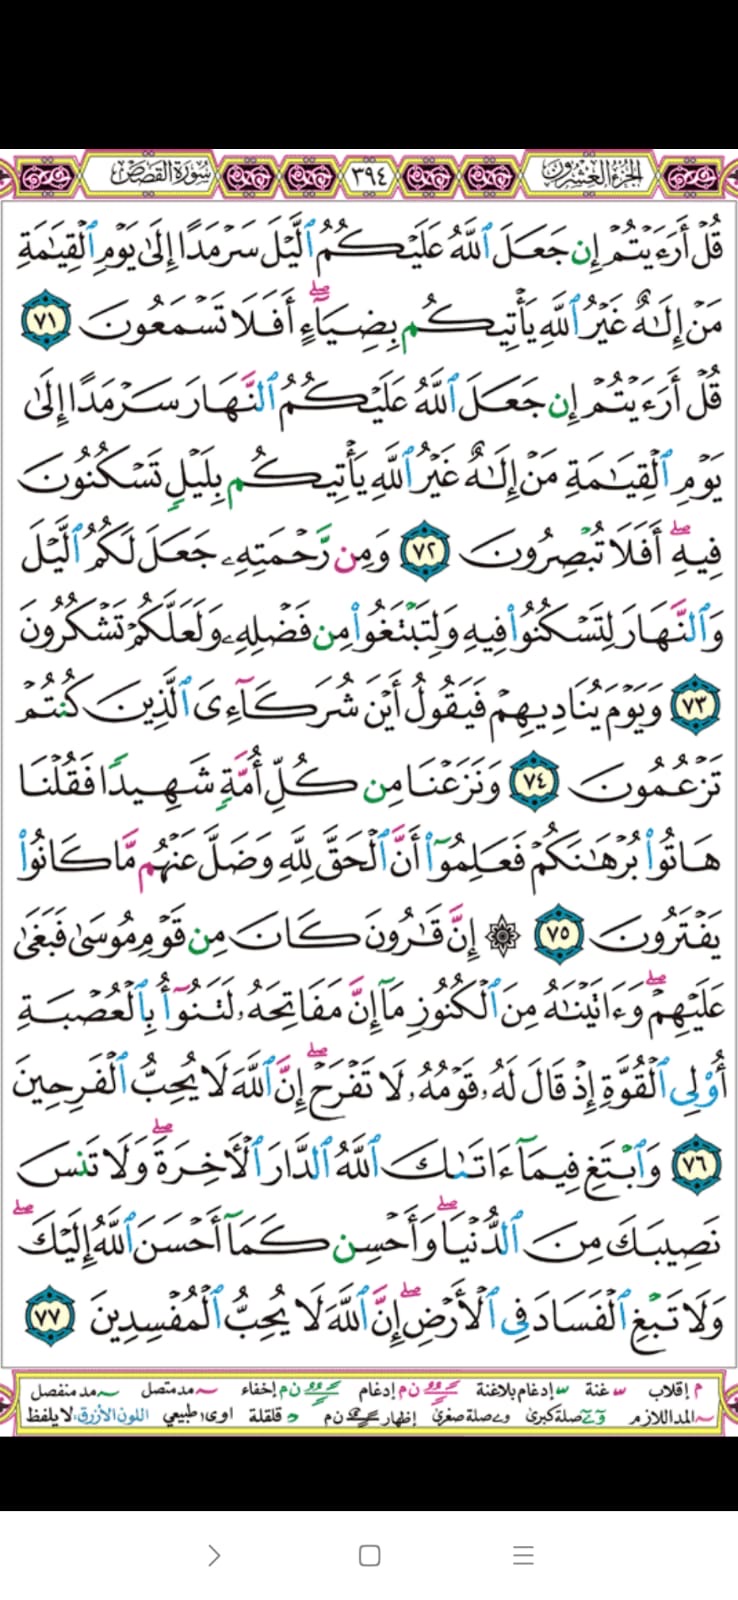 الجزء العشرون ٣٩٤ سورة القصص
قُلْ أَرَءَيْتُمْ إِن جَعَلَ ٱللَّهُ عَلَيْكُمُ ٱلَّيْلَ سَرْمَدًا إِلَىٰ يَوْمِ ٱلْقِيَـٰمَةِ
مَنْ إِلَـٰهٌ غَيْرُ ٱللَّهِ يَأْتِيكُم بِضِيَآءٍ ۖ أَفَلَا تَسْمَعُونَ ٧١
قُلْ أَرَءَيْتُمْ إِن جَعَلَ ٱللَّهُ عَلَيْكُمُ ٱلنَّهَارَ سَرْمَدًا إِلَىٰ
يَوْمِ ٱلْقِيَـٰمَةِ مَنْ إِلَـٰهٌ غَيْرُ ٱللَّهِ يَأْتِيكُم بِلَيْلٍ تَسْكُنُونَ
فِيهِ ۖ أَفَلَا تُبْصِرُونَ ٧٢ وَمِن رَّحْمَتِهِۦ جَعَلَ لَكُمُ ٱلَّيْلَ
وَٱلنَّهَارَ لِتَسْكُنُوا۟ فِيهِ وَلِتَبْتَغُوا۟ مِن فَضْلِهِۦ وَلَعَلَّكُمْ تَشْكُرُونَ
٧٣ وَيَوْمَ يُنَادِيهِمْ فَيَقُولُ أَيْنَ شُرَكَآءِىَ ٱلَّذِينَ كُنتُمْ
تَزْعُمُونَ ٧٤ وَنَزَعْنَا مِن كُلِّ أُمَّةٍ شَهِيدًا فَقُلْنَا
هَاتُوا۟ بُرْهَـٰنَكُمْ فَعَلِمُوٓا۟ أَنَّ ٱلْحَقَّ لِلَّهِ وَضَلَّ عَنْهُم مَّا كَانُوا۟
يَفْتَرُونَ ٧٥ ۞ إِنَّ قَـٰرُونَ كَانَ مِن قَوْمِ مُوسَىٰ فَبَغَىٰ
عَلَيْهِمْ ۖ وَءَاتَيْنَـٰهُ مِنَ ٱلْكُنُوزِ مَآ إِنَّ مَفَاتِحَهُۥ لَتَنُوٓأُ بِٱلْعُصْبَةِ
أُو۟لِى ٱلْقُوَّةِ إِذْ قَالَ لَهُۥ قَوْمُهُۥ لَا تَفْرَحْ ۖ إِنَّ ٱللَّهَ لَا يُحِبُّ ٱلْفَرِحِينَ
٧٦ وَٱبْتَغِ فِيمَآ ءَاتَىٰكَ ٱللَّهُ ٱلدَّارَ ٱلْـَٔاخِرَةَ ۖ وَلَا تَنسَ
نَصِيبَكَ مِنَ ٱلدُّنْيَا ۖ وَأَحْسِن كَمَآ أَحْسَنَ ٱللَّهُ إِلَيْكَ ۖ
وَلَا تَبْغِ ٱلْفَسَادَ فِى ٱلْأَرْضِ ۖ إِنَّ ٱللَّهَ لَا يُحِبُّ ٱلْمُفْسِدِينَ ٧٧
م إقلاب غنة إدغام بلاغنة ن م إدغام ن م إخفاء مد متصل مد منفصل
المد اللازم صلة كبرى صلة صغرى إظهار ن م قلقلة اوى طبيعي اللون الأزرق لا يلفظ